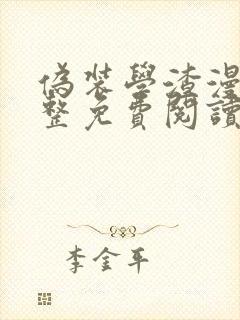 偽裝學渣漫
整免費閱讀
李金平